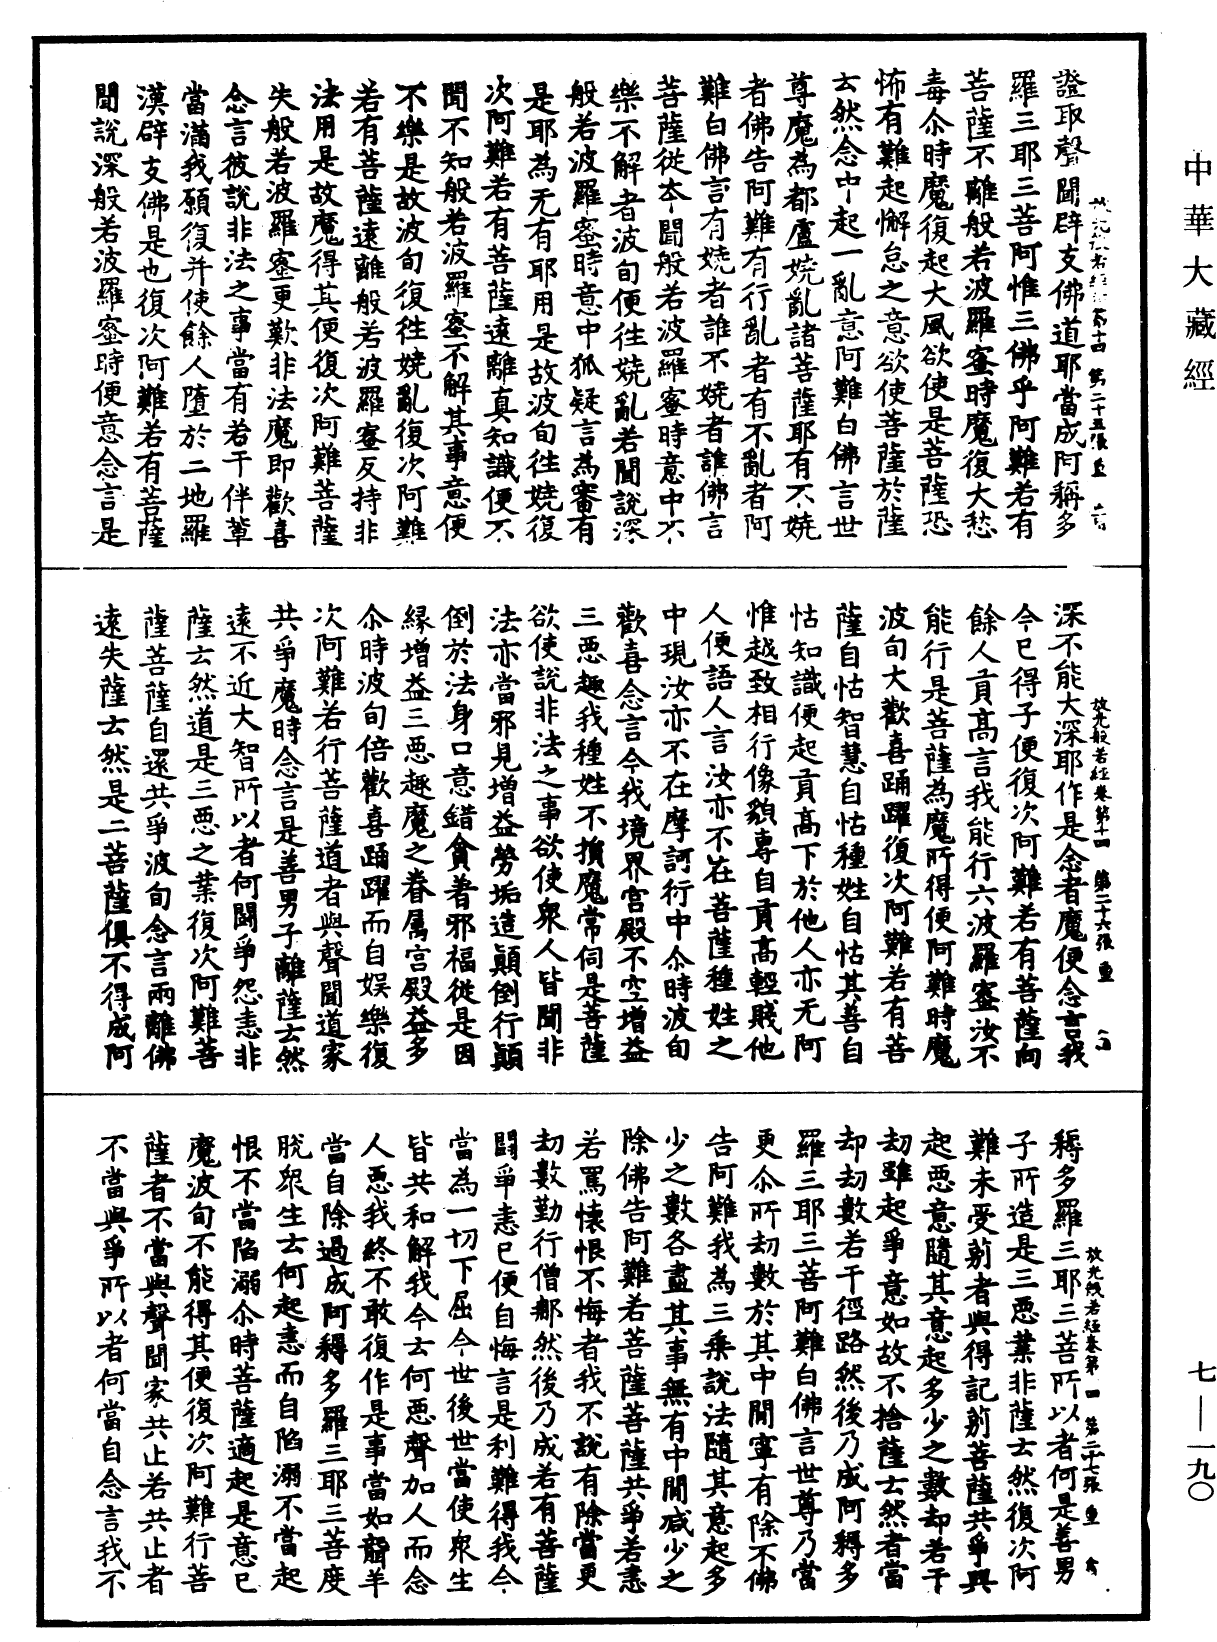 中華大藏經
證取聲聞辟支佛道耶當成阿稱多
羅三耶三菩阿惟三佛乎阿難若有
菩薩不離般若波羅蜜時魔復大愁
毒尒時魔復起大風欲使是菩薩恐
怖有難起懈怠之意欲使菩薩於薩
云然念中起一亂意阿難白佛言世
尊魔為都盧嬈亂諸菩薩耶有不嬈
者佛告阿難有行亂者有不亂者阿
難白佛言有嬈者誰不嬈者誰佛言
菩薩從本聞般若波羅蜜時意中不
樂不解者波旬便往嬈亂若聞說深
般若波羅蜜時意中狐疑言為審有
是耶為无有耶用是故波旬往嬈復
次阿難若有菩薩遠離真知識便不
聞不知般若波羅蜜不解其事意便
不樂是故波旬復往嬈亂復次阿難
若有菩薩遠離般若波羅蜜反持非
法用是故魔得其便復次阿難菩薩
失般若波羅蜜更歎非法魔即歡喜
念言彼說非法之事當有若干伴輩
當滿我願復并使餘人墮於二地羅
漢辟支佛是也復次阿難若有菩薩
聞說深般若波羅蜜時便意念言是
放光般若經卷第十四 第二十六張 重
深不能大深耶作是念者魔便念言我
今已得子便復次阿難若有菩薩向
餘人貢高言我能行六波羅蜜汝不
能行是菩薩為魔所得便阿難時魔
波旬大歡喜踊躍復次阿難若有菩
薩自怙智慧自怙種姓自怙其善自
怙知識便起貢高下於他人亦无阿
惟越致相行像貌專自貢高輕賤他
人便語人言汝亦不在菩薩種姓之
中現汝亦不在摩訶行中尒時波旬
歡喜念言今我境界宮殿不空增益
三惡趣我種姓不損魔常伺是菩薩
欲使說非法之事欲使眾人皆聞非
法亦當邪見增益勞垢造顛倒行顛
倒於法身口意錯貪著邪福從是因
緣增益三惡趣魔之眷屬宮殿益多
尒時波旬倍歡喜踊躍而自娛樂復
次阿難若行菩薩道者與聲聞道家
共爭魔時念言是善男子離薩云然
遠不近大智所以者何鬪爭怨恚非
薩云然道是三惡之業復次阿難菩
薩菩薩自還共爭波旬念言兩離佛
遠失薩云然是二菩薩俱不得成阿
第二十七張 重
耨多羅三耶三菩所以者何是善男
子所造是三惡業非薩云然復次阿
難未受莂者與得記莂菩薩共爭與
起惡意隨其意起多少之數却若干
劫雖起爭意如故不捨薩云然者當
却劫數若干徑路然後乃成阿耨多
羅三耶三菩阿難白佛言世尊乃當
更尒所劫數於其中閒寧有除不佛
告阿難我為三乘說法隨其意起多
少之數各盡其事無有中閒減少之
除佛告阿難若菩薩菩薩共爭若恚
若罵懷恨不悔者我不說有除當更
劫數勤行僧那然後乃成若有菩薩
鬪爭恚已便自悔言是利難得我今
當為一切下屈今世後世當使眾生
皆共和解我今云何惡聲加人而念
人惡我終不敢復作是事當如聾羊
當自除過成阿耨多羅三耶三菩度
脫眾生云何起恚而自陷溺不當起
恨不當陷溺尒時菩薩適起是意已
魔波旬不能得其便復次阿難行菩
薩者不當與聲聞家共止若共止者
不當與爭所以者何當自念言我不
七—一九〇